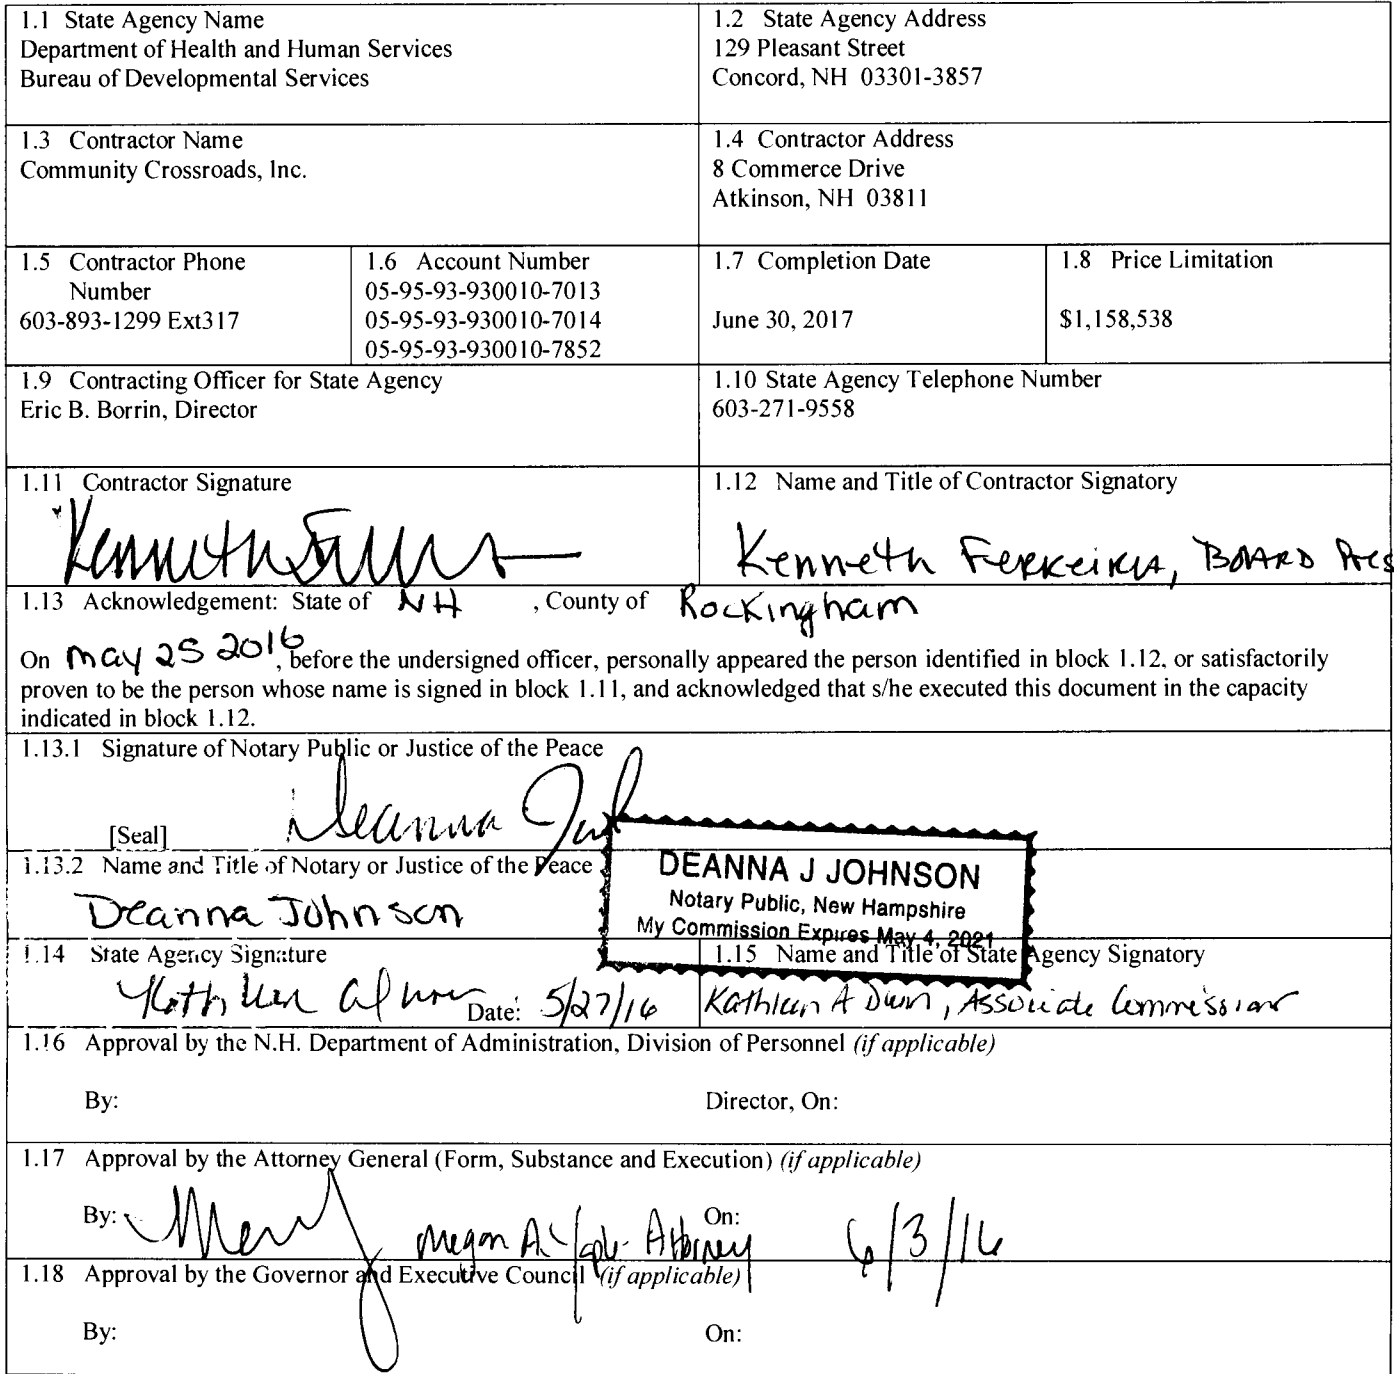 1.1 State Agency Name
Department of Health and Human Services
Bureau of Developmental Services
1.2 State Agency Address
129 Pleasant Street
Concord, NH 03301-3857
1.3 Contractor Name
Community Crossroads, Inc.
1.4 Contractor Address
8 Commerce Drive
Atkinson, NH 03811
1.5 Contractor Phone
Number
603-893-1299 Ext317
1.6 Account Number
05-95-93-930010-7013
05-95-93-930010-7014
05-95-93-930010-7852
1.7 Completion Date
June 30, 2017
1.8 Price Limitation
$1,158,538
1.9 Contracting Officer for State Agency
Eric B. Borrin, Director
1.10 State Agency Telephone Number
603-271-9558
1.11 Contractor Signature
Kenneth
1.12 Name and Title of Contractor Signatory
Kenneth Ferreira, Board Pres
1.13 Acknowledgement: State of NH , County of Rockingham
On May 25 2016, before the undersigned officer, personally appeared the person identified in block 1.12, or satisfactorily
proven to be the person whose name is signed in block 1.11, and acknowledged that s/he executed this document in the capacity
indicated in block 1.12.
1.13.1 Signature of Notary Public or Justice of the Peace
Deanna
[Seal]
1.13.2 Name and Title of Notary or Justice of the Peace
Deanna Johnson
DEANNA J JOHNSON
Notary Public, New Hampshire
My Commission Expires May 4, 2021
1.14 State Agency Signature
Date: 5/27/16
1.15 Name and Title of State Agency Signatory
Kathleen A Dunn, Associate Commissioner
1.16 Approval by the N.H. Department of Administration, Division of Personnel (if applicable)
By: Director, On:
1.17 Approval by the Attorney General (Form, Substance and Execution) (if applicable)
By: Megan A. Attorney On: 6/3/16
1.18 Approval by the Governor and Executive Council (if applicable)
By: On: